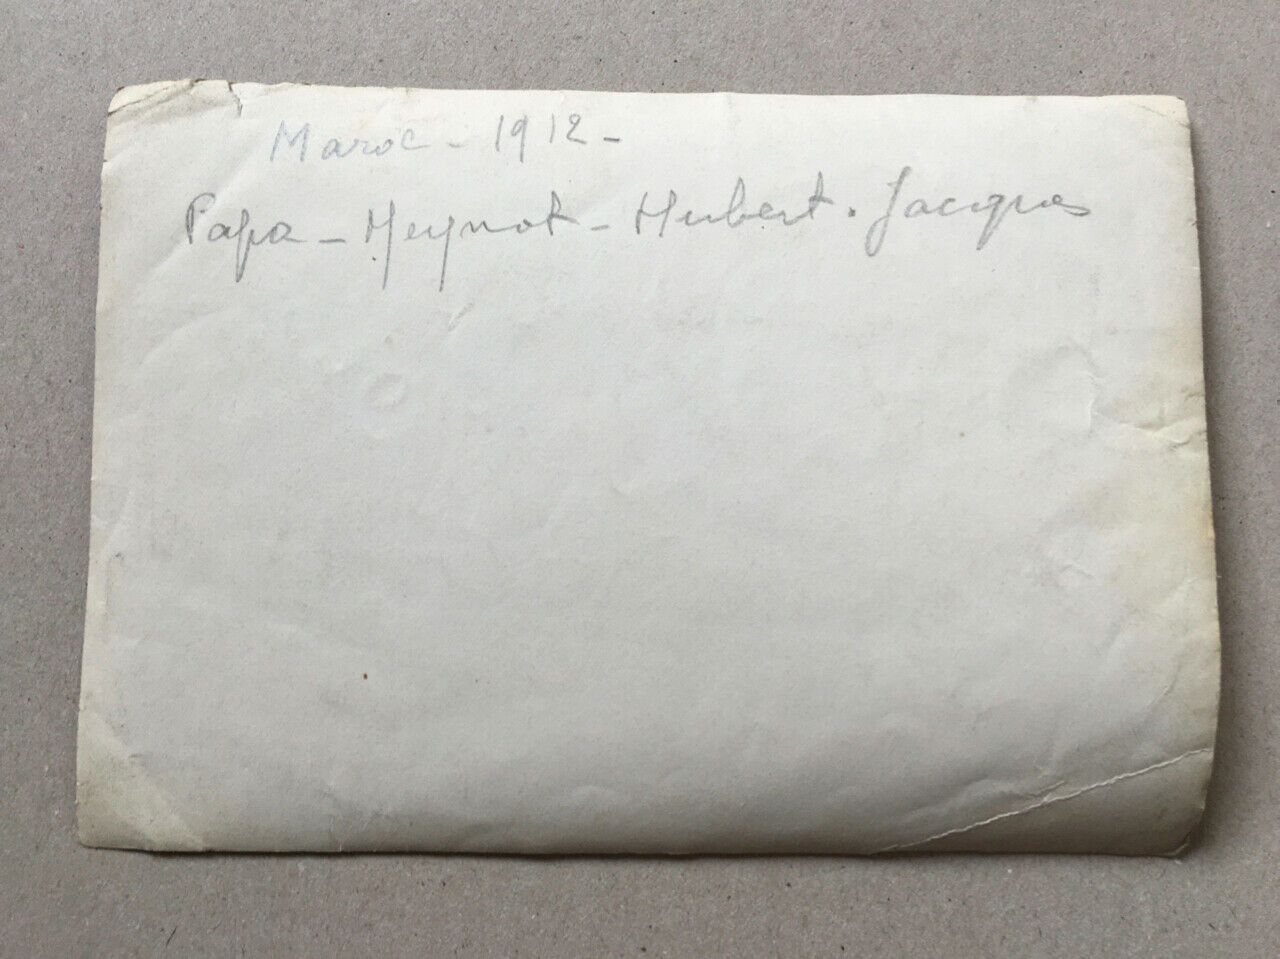 Maroc - 1912 -
Papa - Meynot - Hubert. Jacques